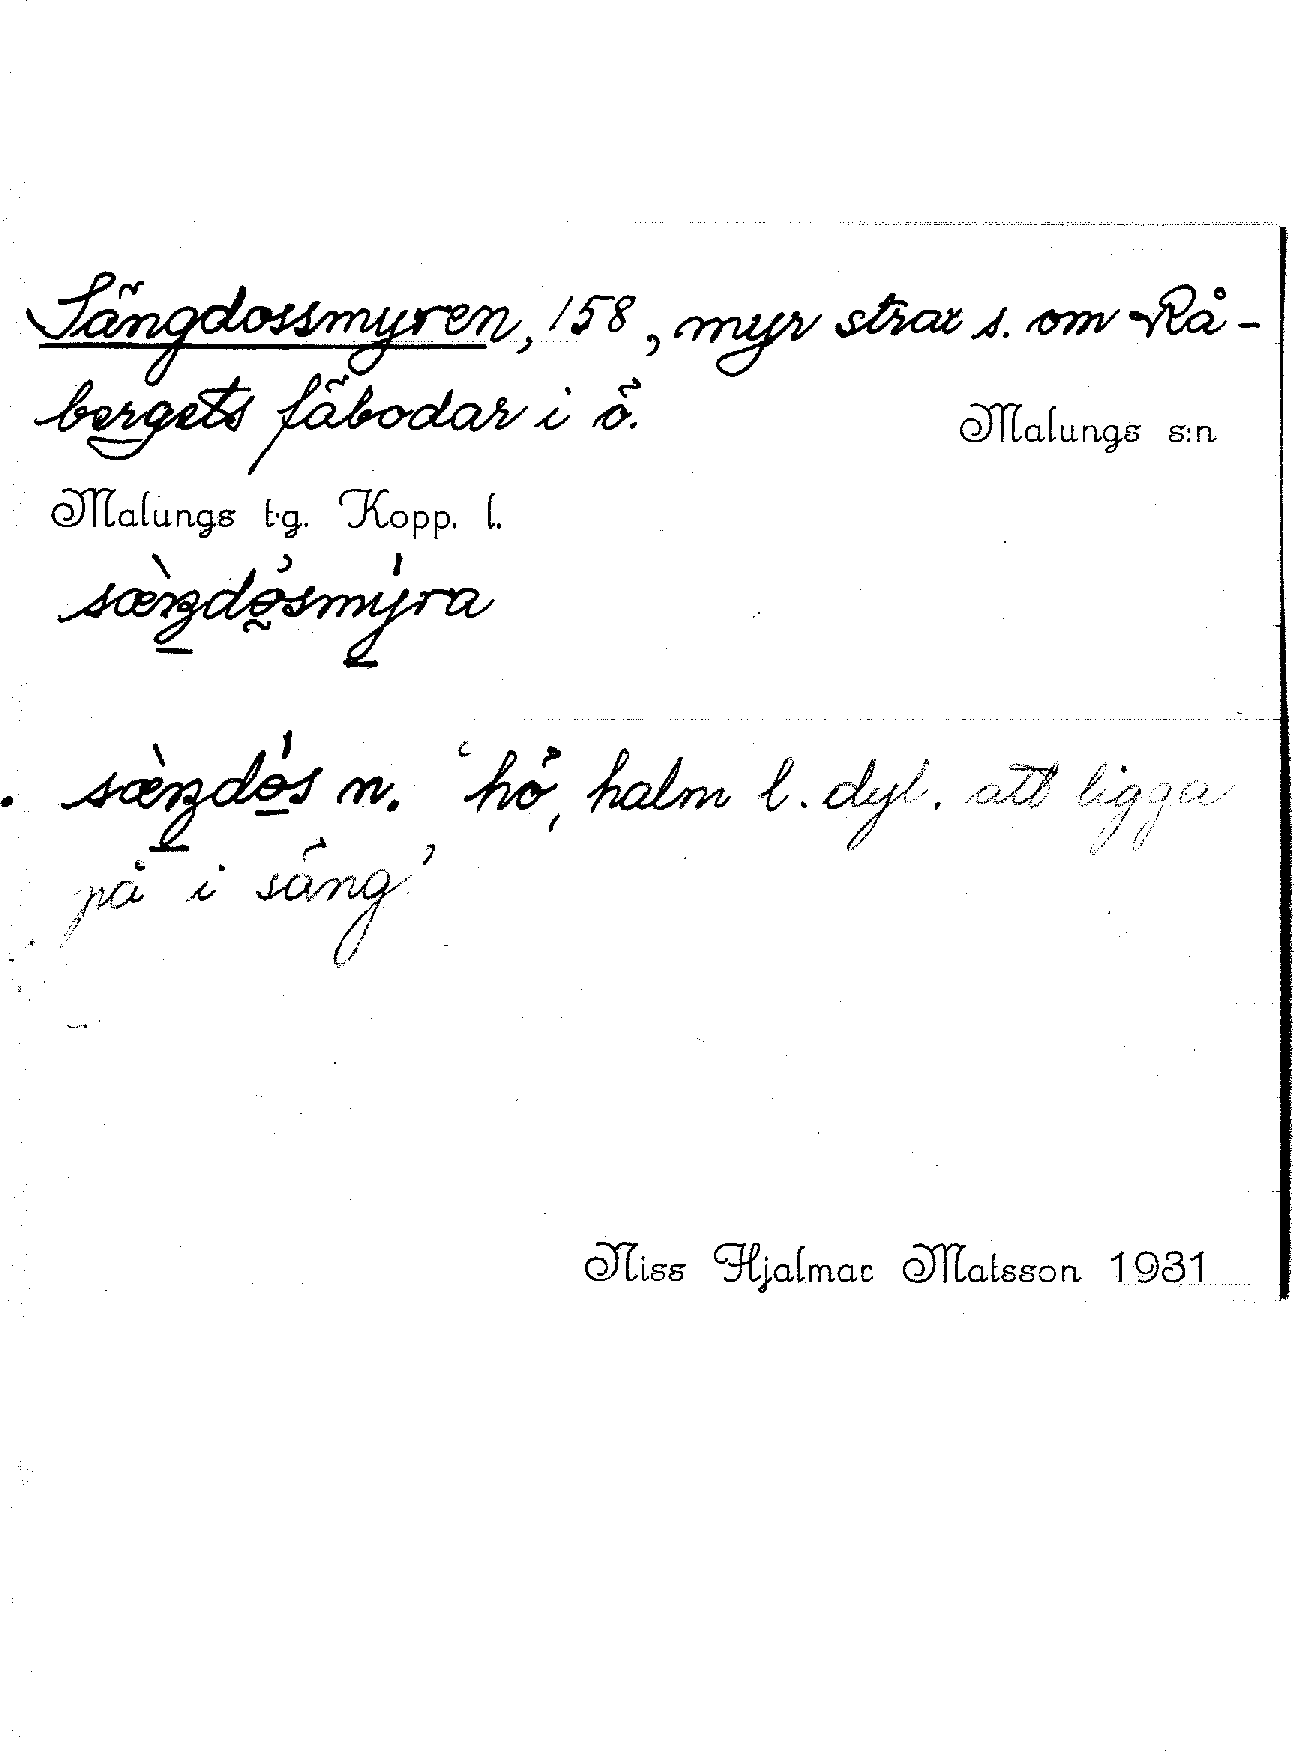 Sängdossmyren, 158, myr strax s. om Rå-
bergets fäbodar i ö.
Malungs s:n
Malungs t.g. Kopp. l.
sæ̀ŋdósmýra
sæ̀ŋdós n. 'hö, halm l. dyl. att ligga
på i säng'
Niss Hjalmar Matsson 1931